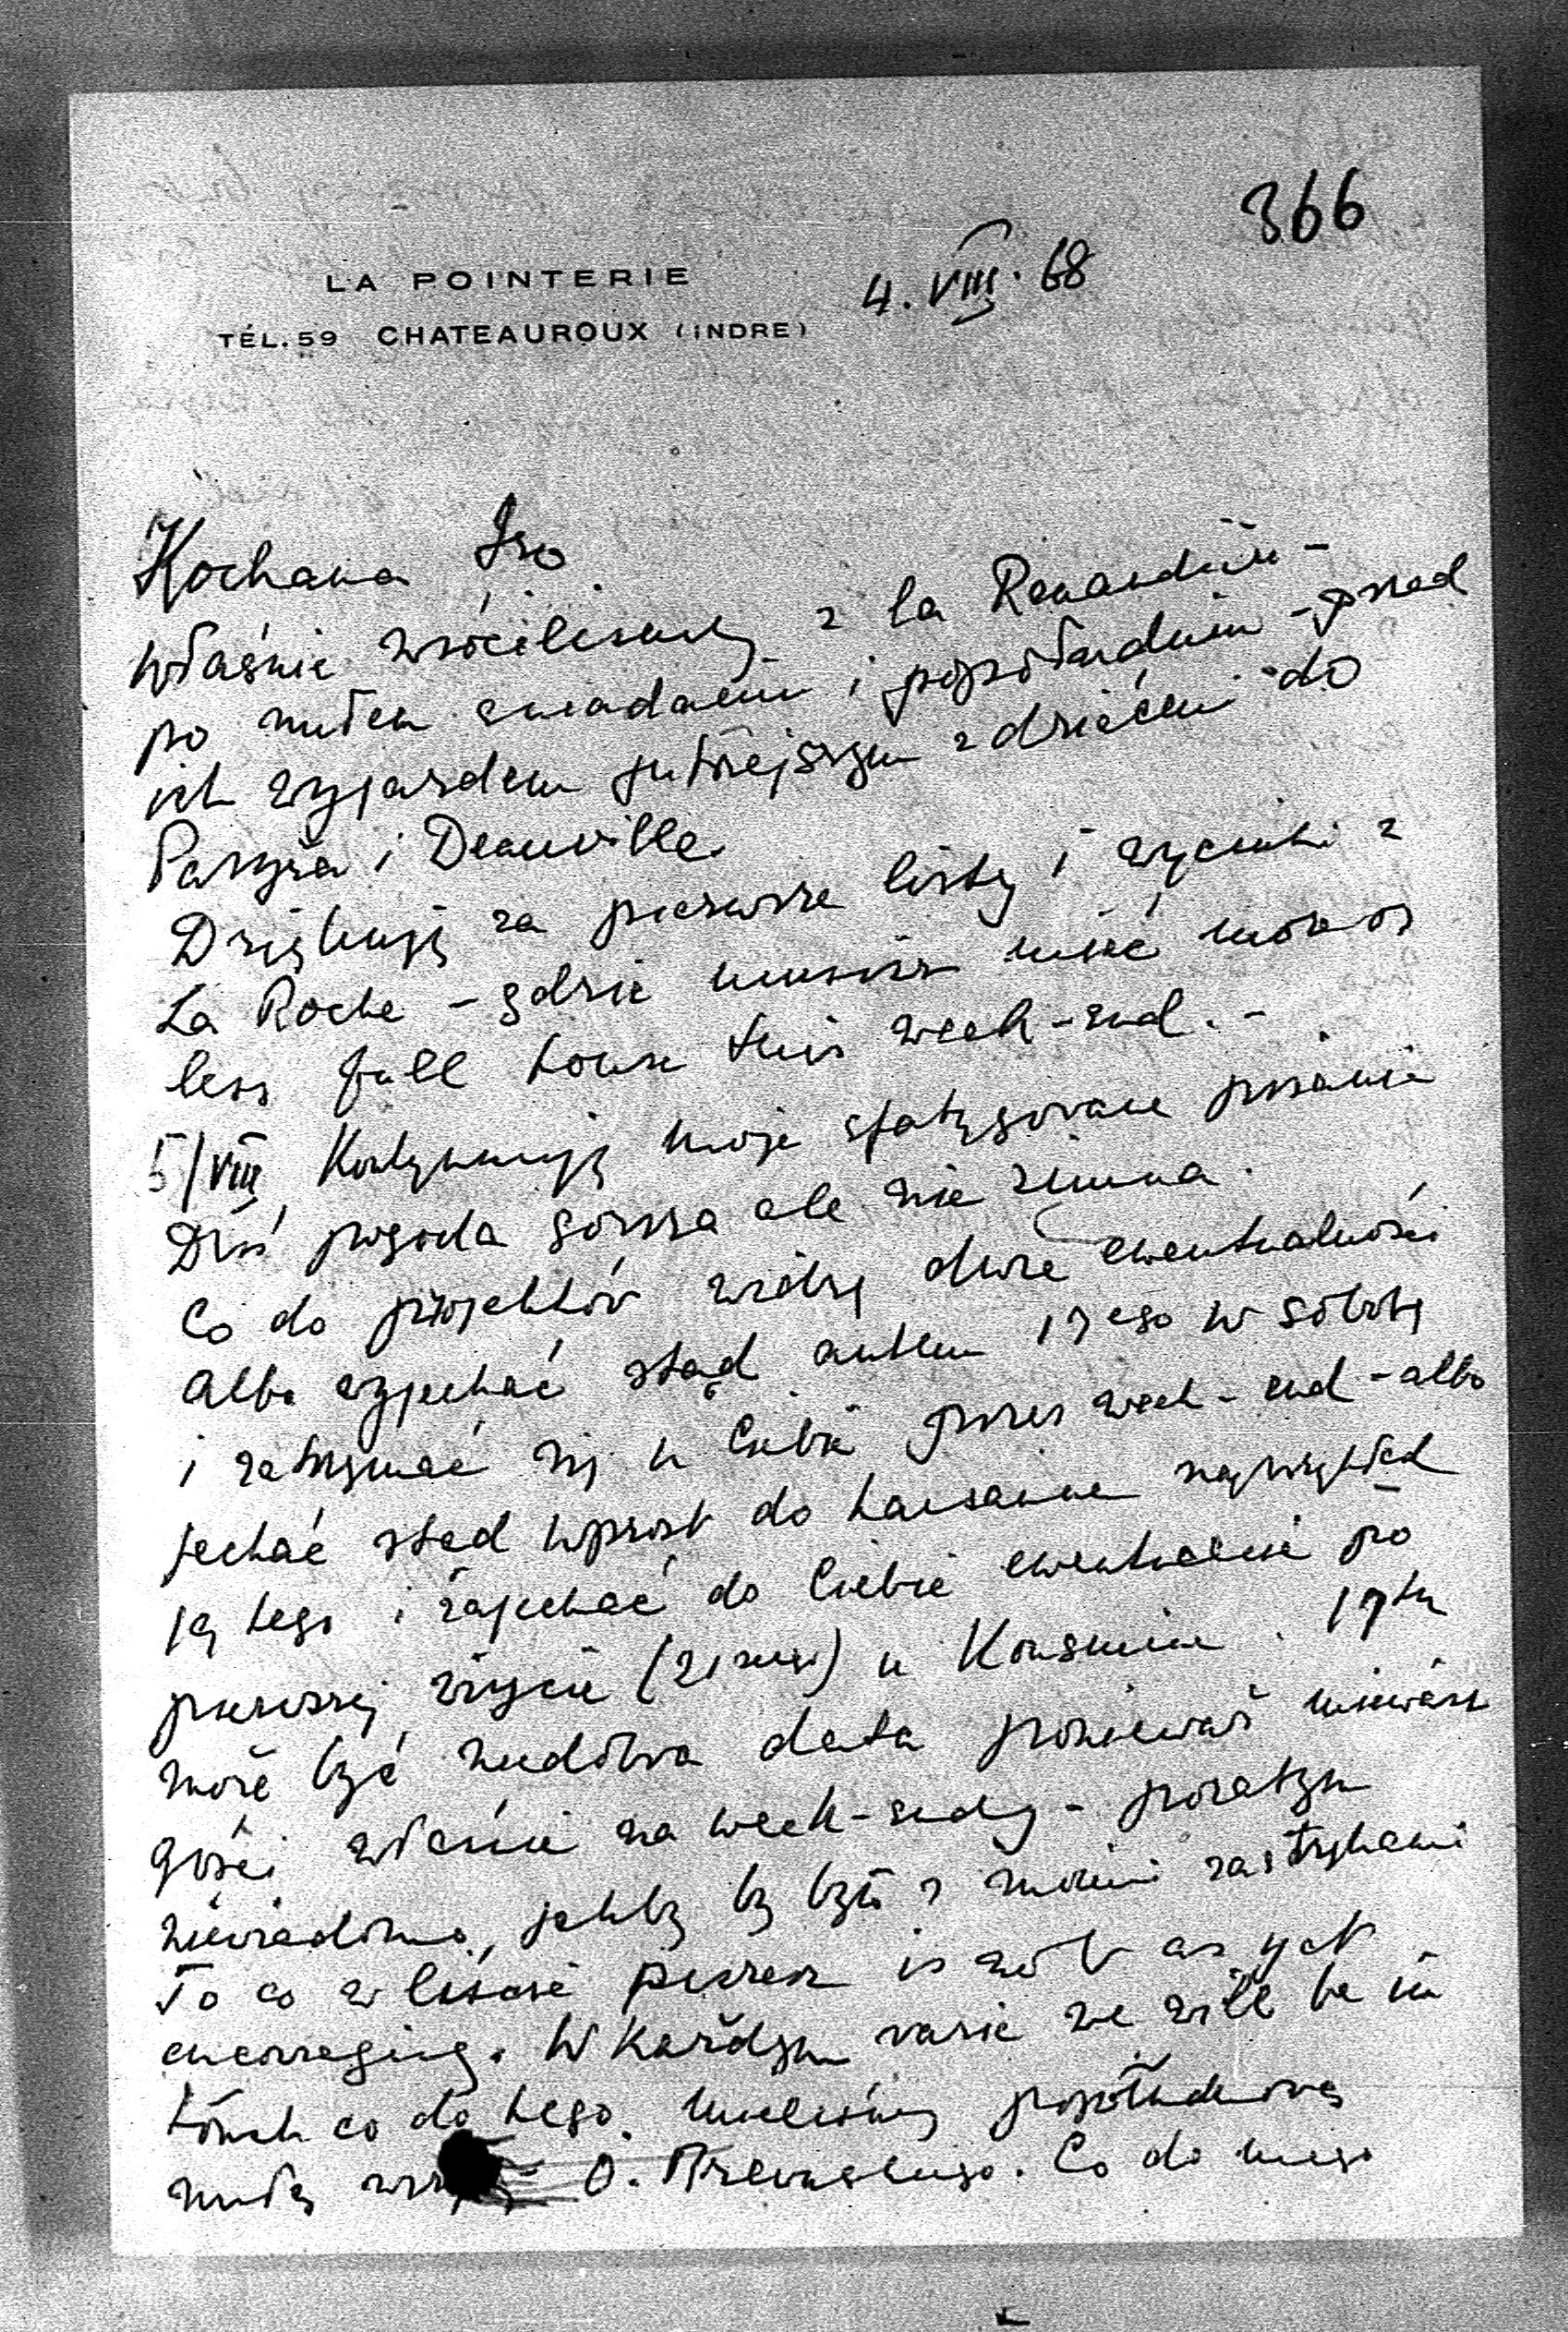 366
LA POINTERIE
4. VIII. 68
TÉL. 59 CHATEAUROUX (INDRE)
Kochana Iso
Właśnie wróciliśmy z la
po miłem śniadaniu i popołudniu - przed
ich wyjazdem jutrzejszym z dziećmi do
Paryża i Deauville.
Dziękuję za pierwsze listy i wycinki z
La Roche - gdzie musisz mieć more or
less full house this week-end. -
5/VIII Kontynuuję moje pisanie
Dziś pogoda gorsza ale nie zimna.
Co do projektów widzę dwie ewentualności
albo wyjechać stąd autem 17ego w sobotę
i zatrzymać się u Ciebie przez week-end - albo
jechać stąd wprost do Lausanne
19tego i zajechać do Ciebie ewentualnie po
pierwszej wizycie (21szego) u . 17ty
może być niedobra data ponieważ miewasz
gości właśnie na week-endy - poza tym
niewiadomo, jakby by było z moimi zastrzykami
To co w liście piszesz is not as yet
encouraging. W każdym razie we will be in
touch co do tego. Mieliśmy popołudniową
miłą O. . Co do mego